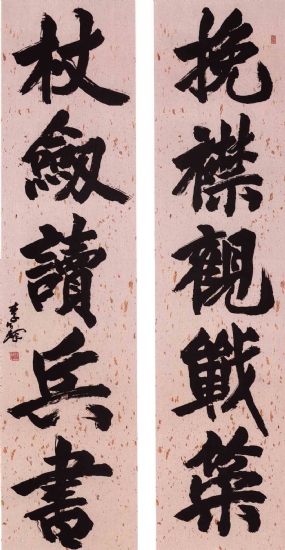 挽襟觀戰策
杖劔讀兵書
李鐸